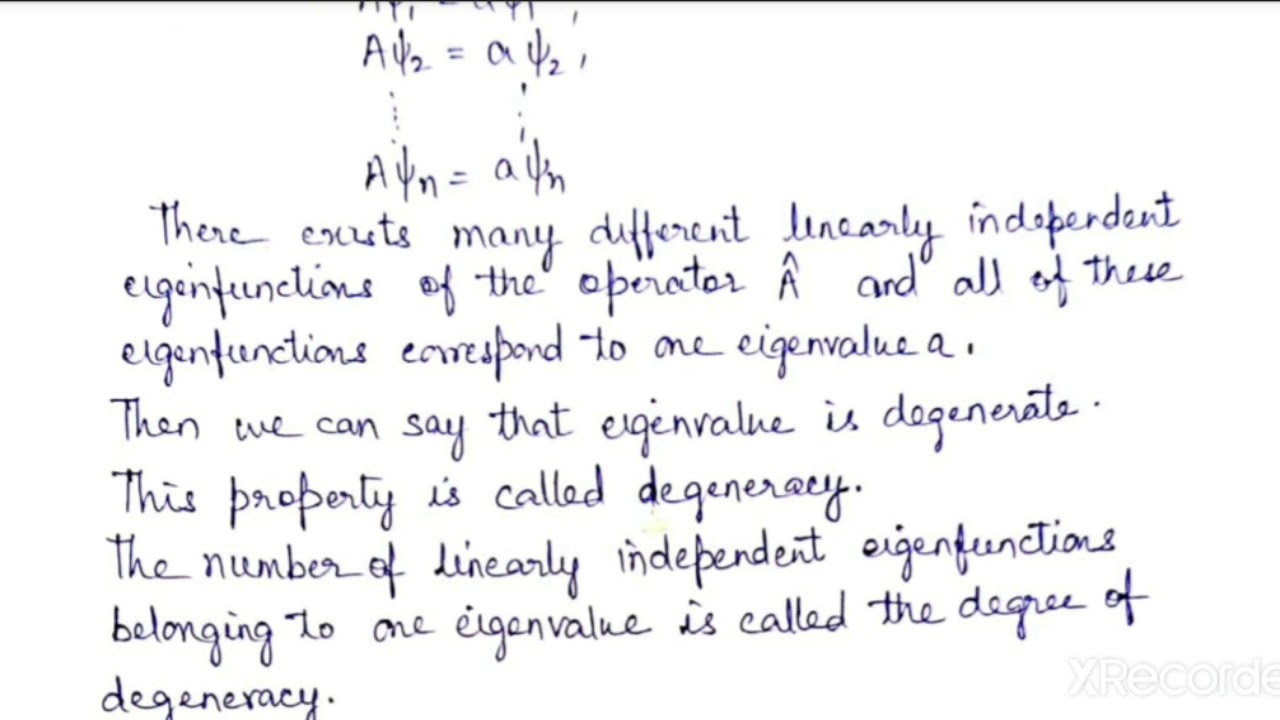 Aψ₁ = aψ₁,
Aψ₂ = aψ₂,
Aψn = aψn
There exists many different linearly independent
eigenfunctions of the operator Â and all of these
eigenfunctions correspond to one eigenvalue a.
Then we can say that eigenvalue is degenerate.
This property is called degeneracy.
The number of linearly independent eigenfunctions
belonging to one eigenvalue is called the degree of
degeneracy.
XRecorde